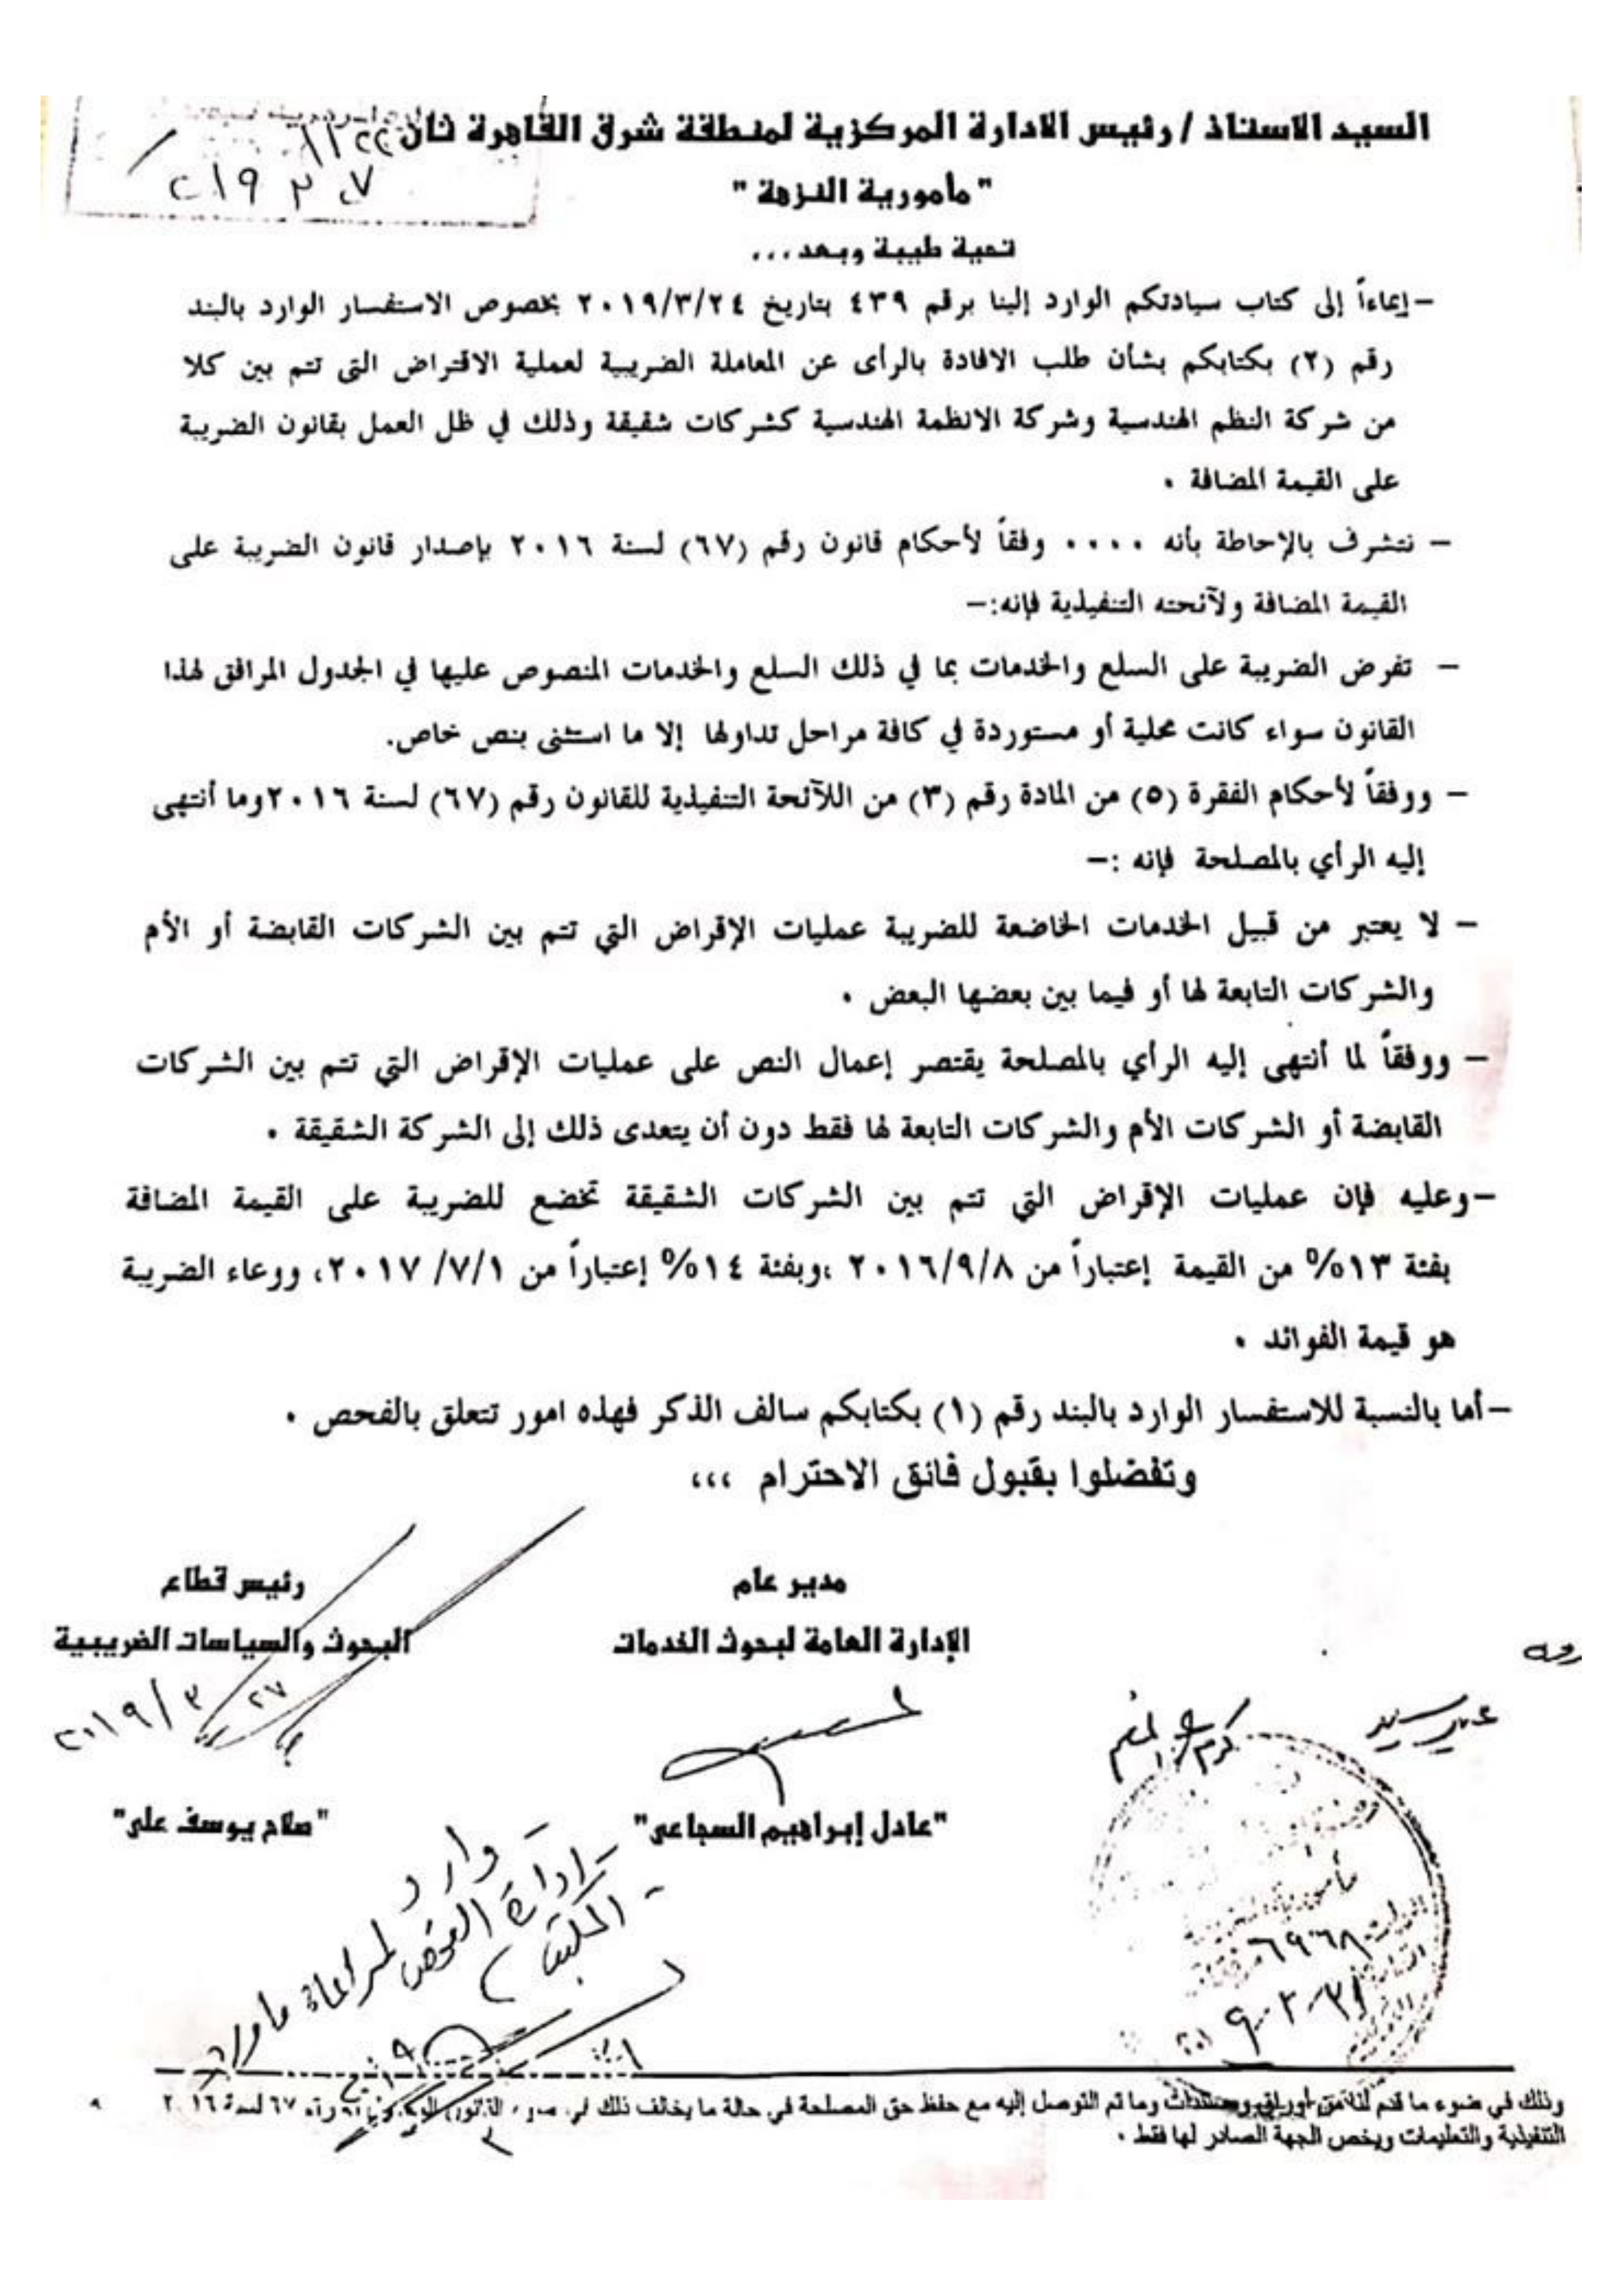 السيد الاستاذ / رئيس الادارة المركزية لمنطقة شرق القاهرة ثان
٢٠١٩
" مأمورية النزهة "
تحية طيبة وبعد ،،،
– إيماءاً إلى كتاب سيادتكم الوارد إلينا برقم ٤٣٩ بتاريخ ٢٠١٩/٣/٢٤ بخصوص الاستفسار الوارد بالبند
رقم (٢) بكتابكم بشأن طلب الافادة بالرأى عن المعاملة الضريبية لعملية الاقتراض التى تتم بين كلا
من شركة النظم الهندسية وشركة الانظمة الهندسية كشركات شقيقة وذلك في ظل العمل بقانون الضريبة
على القيمة المضافة .
– نتشرف بالإحاطة بأنه .... وفقاً لأحكام قانون رقم (٦٧) لسنة ٢٠١٦ بإصدار قانون الضريبة على
القيمة المضافة ولآئحته التنفيذية فإنه:–
– تفرض الضريبة على السلع والخدمات بما في ذلك السلع والخدمات المنصوص عليها في الجدول المرافق لهذا
القانون سواء كانت محلية أو مستوردة في كافة مراحل تداولها إلا ما استثنى بنص خاص.
– ووفقاً لأحكام الفقرة (٥) من المادة رقم (٣) من اللآئحة التنفيذية للقانون رقم (٦٧) لسنة ٢٠١٦ وما أنتهى
إليه الرأي بالمصلحة فإنه :–
– لا يعتبر من قبيل الخدمات الخاضعة للضريبة عمليات الإقراض التي تتم بين الشركات القابضة أو الأم
والشركات التابعة لها أو فيما بين بعضها البعض .
– ووفقاً لما أنتهى إليه الرأي بالمصلحة يقتصر إعمال النص على عمليات الإقراض التي تتم بين الشركات
القابضة أو الشركات الأم والشركات التابعة لها فقط دون أن يتعدى ذلك إلى الشركة الشقيقة .
– وعليه فإن عمليات الإقراض التي تتم بين الشركات الشقيقة تخضع للضريبة على القيمة المضافة
بفئة ١٣% من القيمة إعتباراً من ٢٠١٦/٩/٨ ،وبفئة ١٤% إعتباراً من ٢٠١٧/٧/١، ووعاء الضريبة
هو قيمة الفوائد .
– أما بالنسبة للاستفسار الوارد بالبند رقم (١) بكتابكم سالف الذكر فهذه امور تتعلق بالفحص .
وتفضلوا بقبول فائق الاحترام ،،،
مدير عام
رئيس قطاع
الإدارة العامة لبحوث الخدمات
البحوث والسياسات الضريبية
٢٠١٩/٣/٢٧
عبير سيد
"عادل إبراهيم السجاعى"
"صلاح يوسف على"
وارد
إدارة الفحص
المكتب
وذلك في ضوء ما قدم لنا من أوراق ومستندات وما تم التوصل إليه مع حفظ حق المصلحة في حالة ما يخالف ذلك في ضوء القانون رقم ٦٧ لسنة ٢٠١٦
التنفيذية والتعليمات ويخص الجهة الصادر لها فقط .